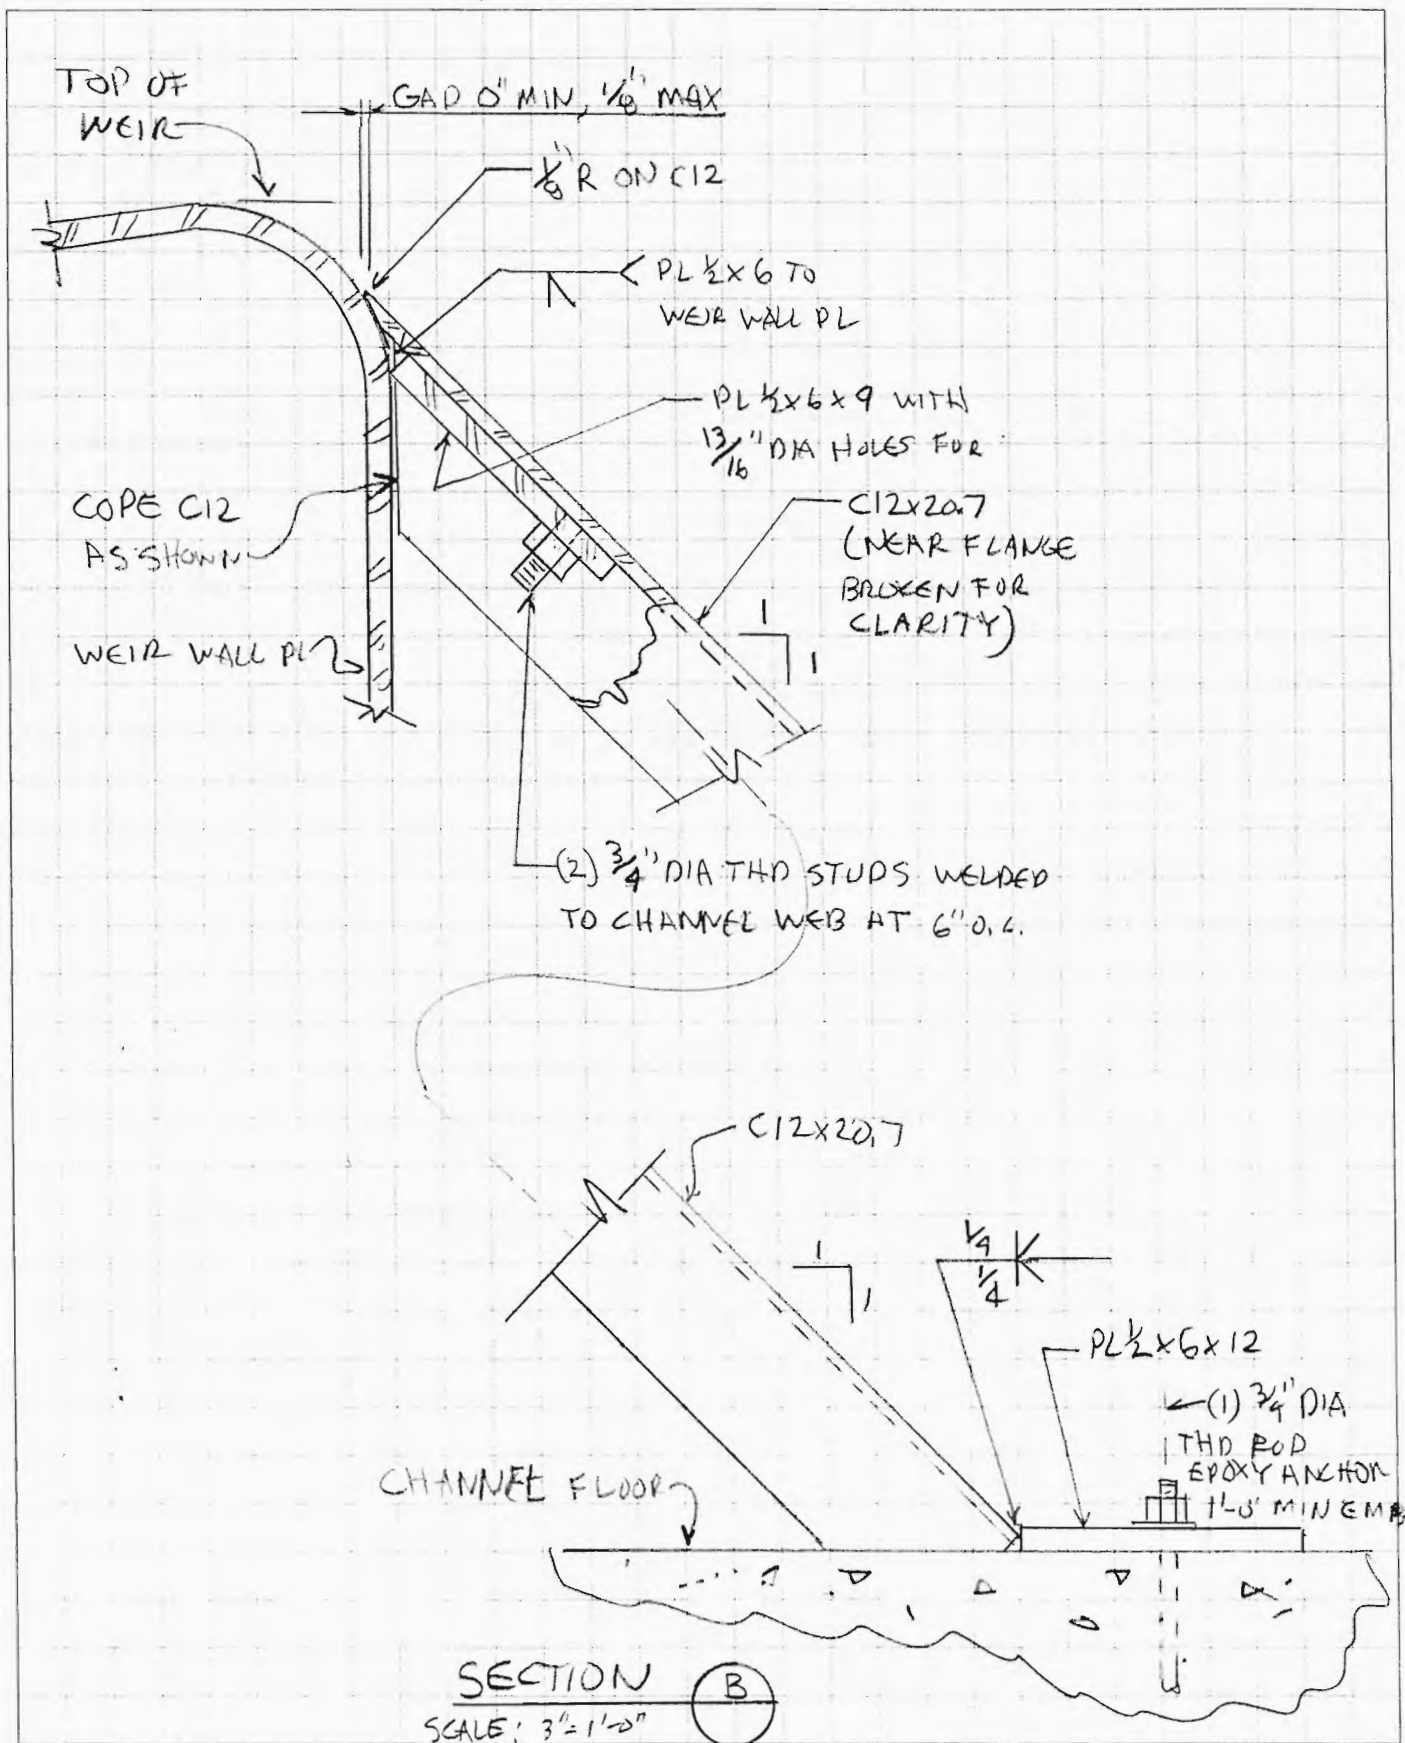 TOP OF
WEIR
GAP 0" MIN, 1/8" MAX
1/8" R ON C12
PL 1/2 X 6 TO
WEIR WALL PL
PL 1/2 X 6 X 9 WITH
13/16" DIA HOLES FOR
COPE C12
AS SHOWN
C12X20.7
(NEAR FLANGE
BROKEN FOR
CLARITY)
1
1
WEIR WALL PL
(2) 3/4" DIA THD STUDS WELDED
TO CHANNEL WEB AT 6" O.C.
C12X20.7
1
1
1/4
1/4
PL 1/2 X 6 X 12
(1) 3/4" DIA
THD ROD
EPOXY ANCHOR
1'-0" MIN EMB
CHANNEL FLOOR
SECTION B
SCALE: 3"=1'-0"